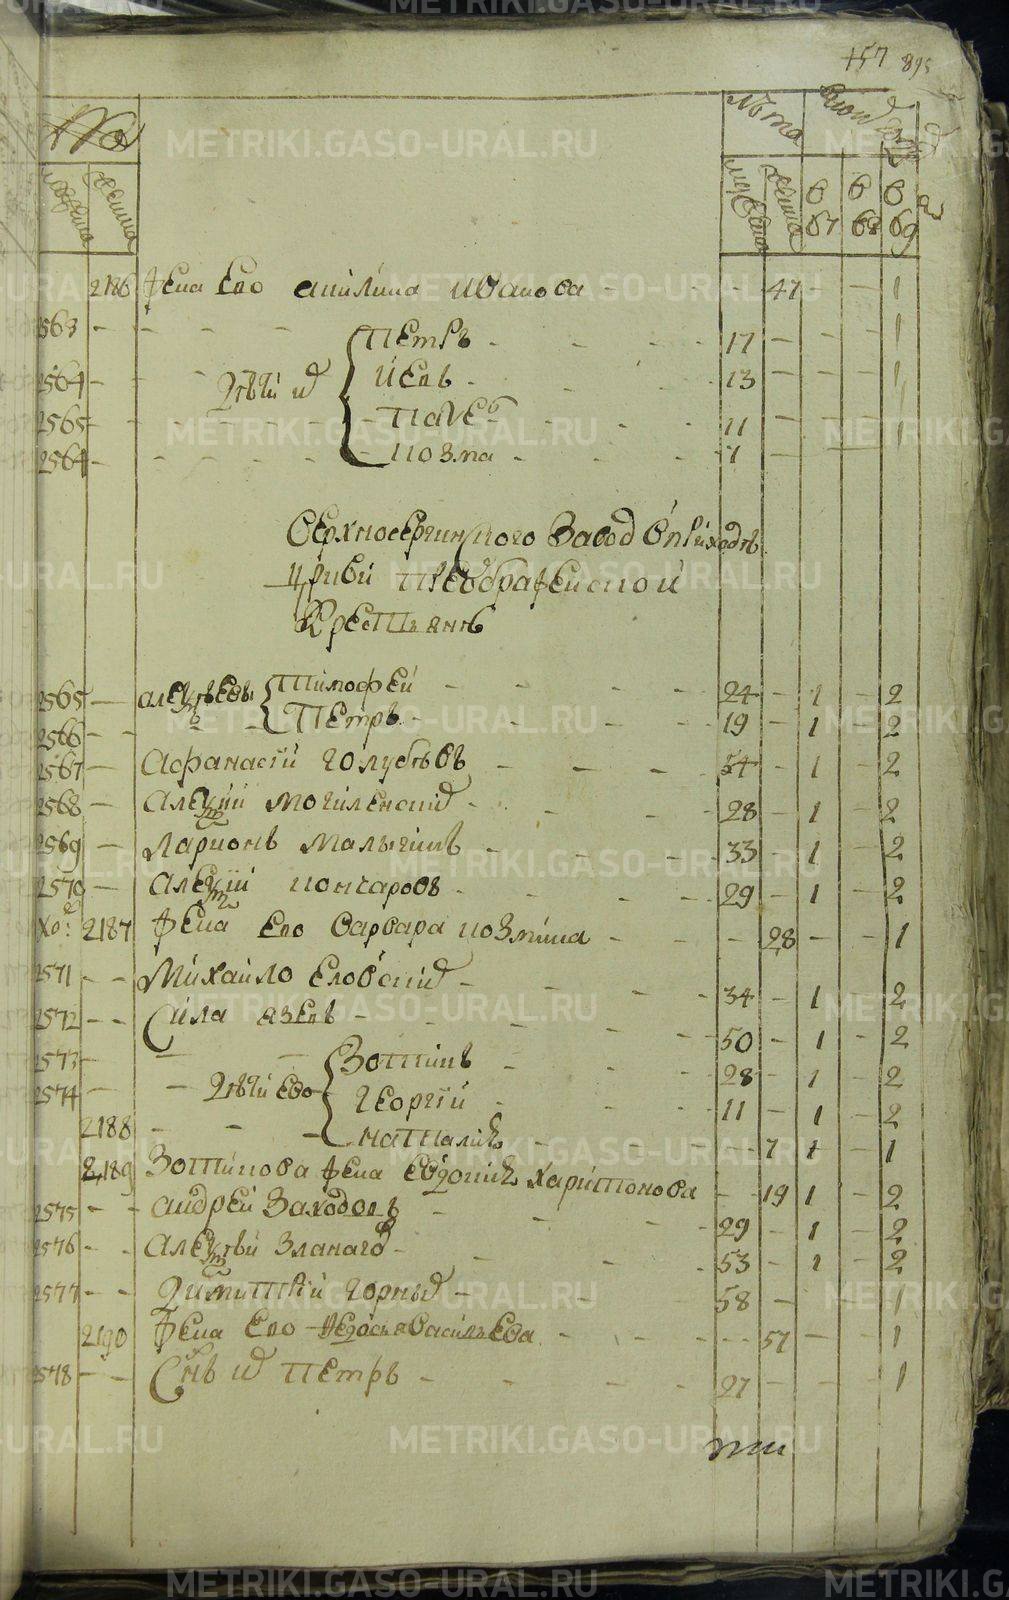 157 895
№
лѣта
мужеска женска
мужеска женска в 67 в 68 в 69
2186 жена ево акилина иванова - - - 47 - - 1
2563 - - - - Петръ - - - 17 - - - 1
2564 - - - дѣти их Иевъ - - - 13 - - - 1
2565 - - - - Павелъ - - - 11 - - - 1
2564 - - - - козма - - - 7 -
Верхносергинского Завод Вприходѣ
Црквй Преображенской
Крестьянѣ
2565 - алеѯѣевы Тимофей - - - 24 - 1 - 2
2566 - - - Петръ - - - 19 - 1 - 2
2567 - Афанасий голубѣвъ - - - 54 - 1 - 2
2568 - Алеѯий могиленский - - - 28 - 1 - 2
2569 - Ларионъ малыгинъ - - - 33 - 1 - 2
2570 - Алеѯий гончаровъ - - - 29 - 1 - 2
2187 жена ево варвара козмина - - - 28 - - 1
2571 - - Михайло еловский - - - 34 - 1 - 2
2572 - - Сила язевъ - - - 50 - 1 - 2
2573 - - - Зотинъ - - - 28 - 1 - 2
2574 - - дѣти ево георгий - - - 11 - 1 - 2
2188 - - - наталия - - - 7 1 - 1
2189 Зотинова жена евдокия харитонова - - 19 1 - 2
2575 - - андрей Заходовъ - - - 29 - 1 - 2
2576 - - алеѯѣй - - - 53 - 1 - 2
2577 - - димитрий горных - - - 58 - - - 1
2190 жена ево Федосья васильева - - - 57 - - 1
2578 - - Снъ их Петръ - - - 27 - - - 1
METRIKI.GASO-URAL.RU